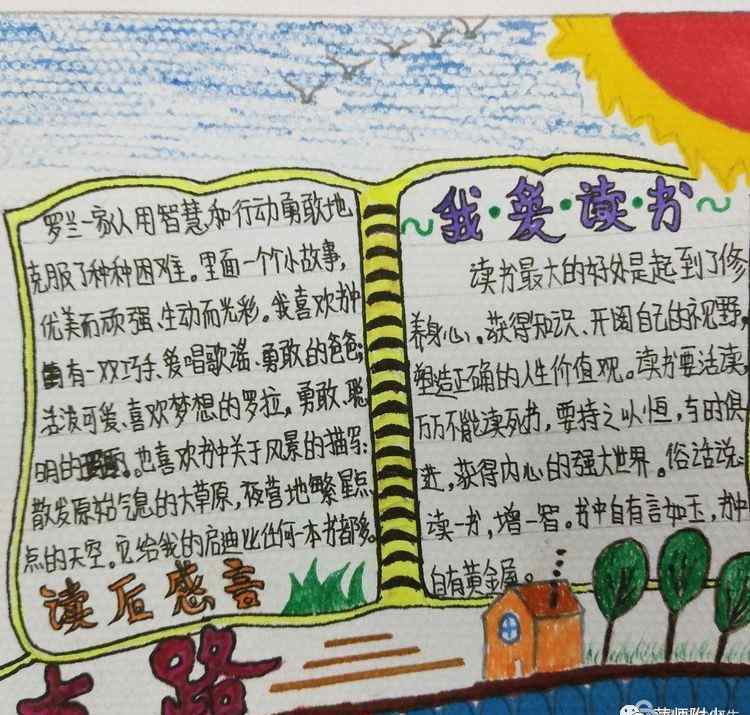 罗兰一家人用智慧和行动勇敢地
克服了种种困难。里面一个个小故事，
优美而顽强、生动而光彩。我喜欢书中
有一双巧手、爱唱歌谣、勇敢的爸爸；
活泼可爱、喜欢梦想的罗拉，勇敢、聪
明的。也喜欢书中关于风景的描写：
散发原始气息的大草原，夜营地繁星点
点的天空。它给我的启迪比任何一本书都多。
读后感言
~我·爱·读·书~
读书最大的好处是起到了修
养身心、获得知识、开阔自己的视野，
塑造正确的人生价值观。读书要活读，
万万不能读死书，要持之以恒，与时俱
进，获得内心的强大世界。俗话说：
读一书，增一智。书中自有言如玉，书中
自有黄金屋。
路